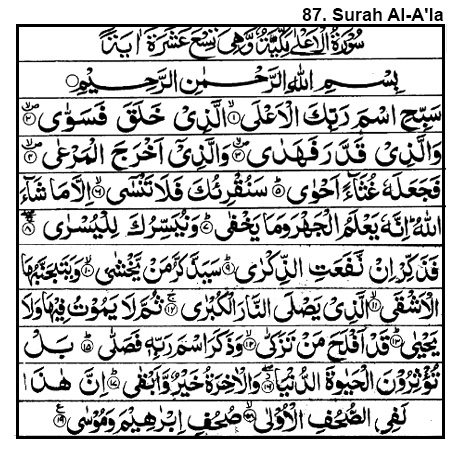 87. Surah Al-A'la
سُوْرَةُ الْاَعْلٰى مَكِّيَّةٌ وَّهِىَ تِسْعَ عَشْرَةَ اٰيَةً
بِسْمِ اللهِ الرَّحْمٰنِ الرَّحِيْمِ
سَبِّحِ اسْمَ رَبِّكَ الْاَعْلَى ۙ﴿۱﴾ الَّذِىْ خَلَقَ فَسَوّٰى ۪ۙ﴿۲﴾
وَالَّذِىْ قَدَّرَ فَهَدٰى ۪ۙ﴿۳﴾ وَالَّذِىْۤ اَخْرَجَ الْمَرْعٰى ۪ۙ﴿۴﴾
فَجَعَلَهٗ غُثَآءً اَحْوٰى ؕ﴿۵﴾ سَنُقْرِئُكَ فَلَا تَنْسٰٓى ۙ﴿۶﴾ اِلَّا مَا شَآءَ
اللهُ ؕ اِنَّهٗ يَعْلَمُ الْجَهْرَ وَمَا يَخْفٰى ؕ﴿۷﴾ وَنُيَسِّرُكَ لِلْيُسْرٰى ۚۖ﴿۸﴾
فَذَكِّرْ اِنْ نَّفَعَتِ الذِّكْرٰى ؕ﴿۹﴾ سَيَذَّكَّرُ مَنْ يَّخْشٰى ۙ﴿۱۰﴾ وَيَتَجَنَّبُهَا
الْاَشْقَى ۙ﴿۱۱﴾ الَّذِىْ يَصْلَى النَّارَ الْكُبْرٰى ۚ﴿۱۲﴾ ثُمَّ لَا يَمُوْتُ فِيْهَا وَلَا
يَحْيٰى ؕ﴿۱۳﴾ قَدْ اَفْلَحَ مَنْ تَزَكّٰى ۙ﴿۱۴﴾ وَذَكَرَ اسْمَ رَبِّهٖ فَصَلّٰى ؕ﴿۱۵﴾ بَلْ
تُؤْثِرُوْنَ الْحَيٰوةَ الدُّنْيَا ۖ﴿۱۶﴾ وَالْاٰخِرَةُ خَيْرٌ وَّاَبْقٰى ؕ﴿۱۷﴾ اِنَّ هٰذَا
لَفِى الصُّحُفِ الْاُوْلٰى ۙ﴿۱۸﴾ صُحُفِ اِبْرٰهِيْمَ وَمُوْسٰى ﴿۱۹﴾